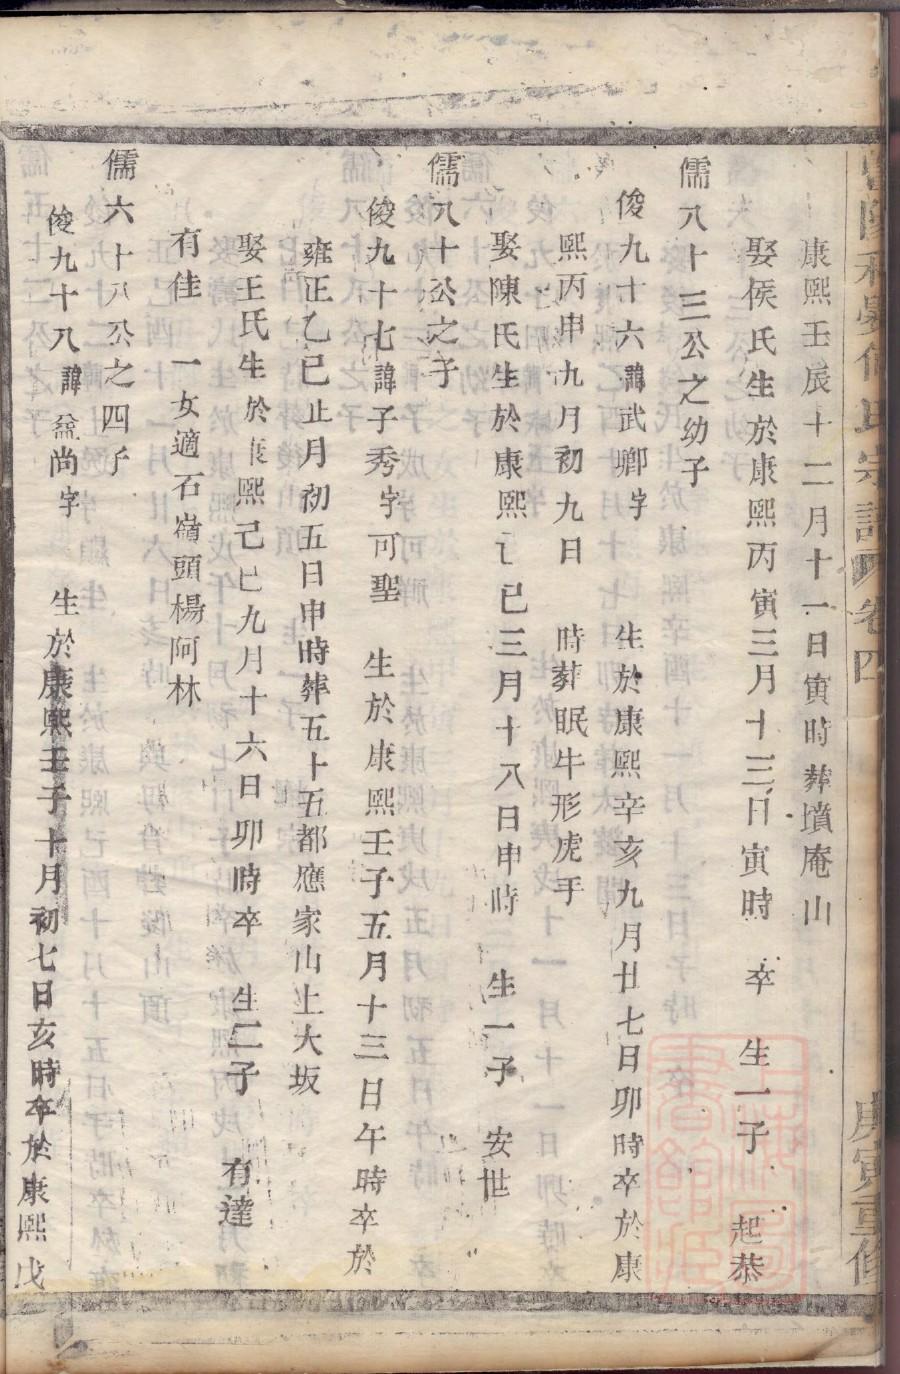 宗譜 卷四
庚寅重修
康熙壬辰十二月十一日寅時葬墳庵山
娶侯氏生於康熙丙寅三月十三日寅時 卒 生一子 起恭
儒八十三公之幼子
俊九十六諱武卿字 生於康熙辛亥九月廿七日卯時卒於康
熙丙申九月初九日 時葬眠牛形虎手
娶陳氏生於康熙 巳三月十八日申時 生一子 安世
儒八十公之子
俊九十七諱子秀字可聖 生於康熙壬子五月十三日午時卒於
雍正乙巳正月初五日申時葬五十五都應家山上大坂
娶王氏生於康熙己巳九月十六日卯時卒 生二子 有達
有佳 一女適石嶺頭楊阿林
儒六十八公之四子
俊九十八諱益尚字 生於康熙壬子十月初七日亥時卒於康熙戊